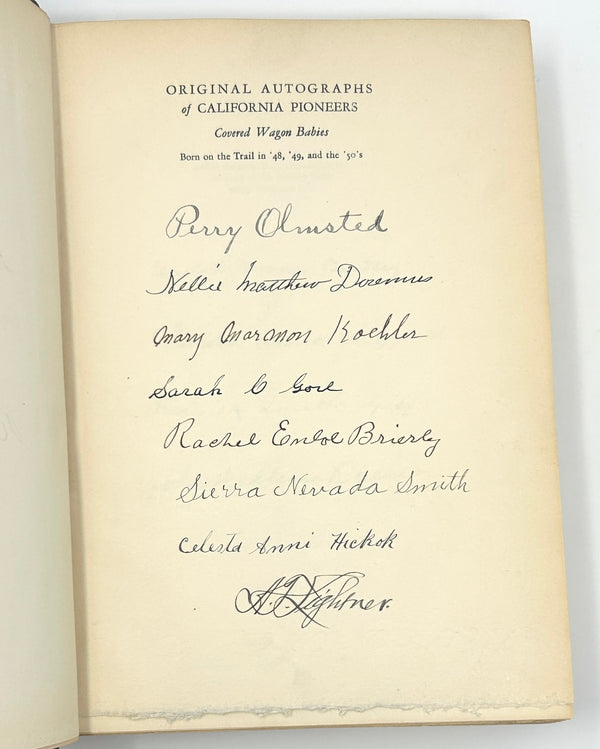 ORIGINAL AUTOGRAPHS
of CALIFORNIA PIONEERS
Covered Wagon Babies
Born on the Trail in '48, '49, and the '50's
Perry Olmsted
Nellie Matthew Doremus
Mary Marmon Koehler
Sarah C Gore
Rachel Enloe Brierly
Sierra Nevada Smith
Celesta Anni Hickok
Lightner.